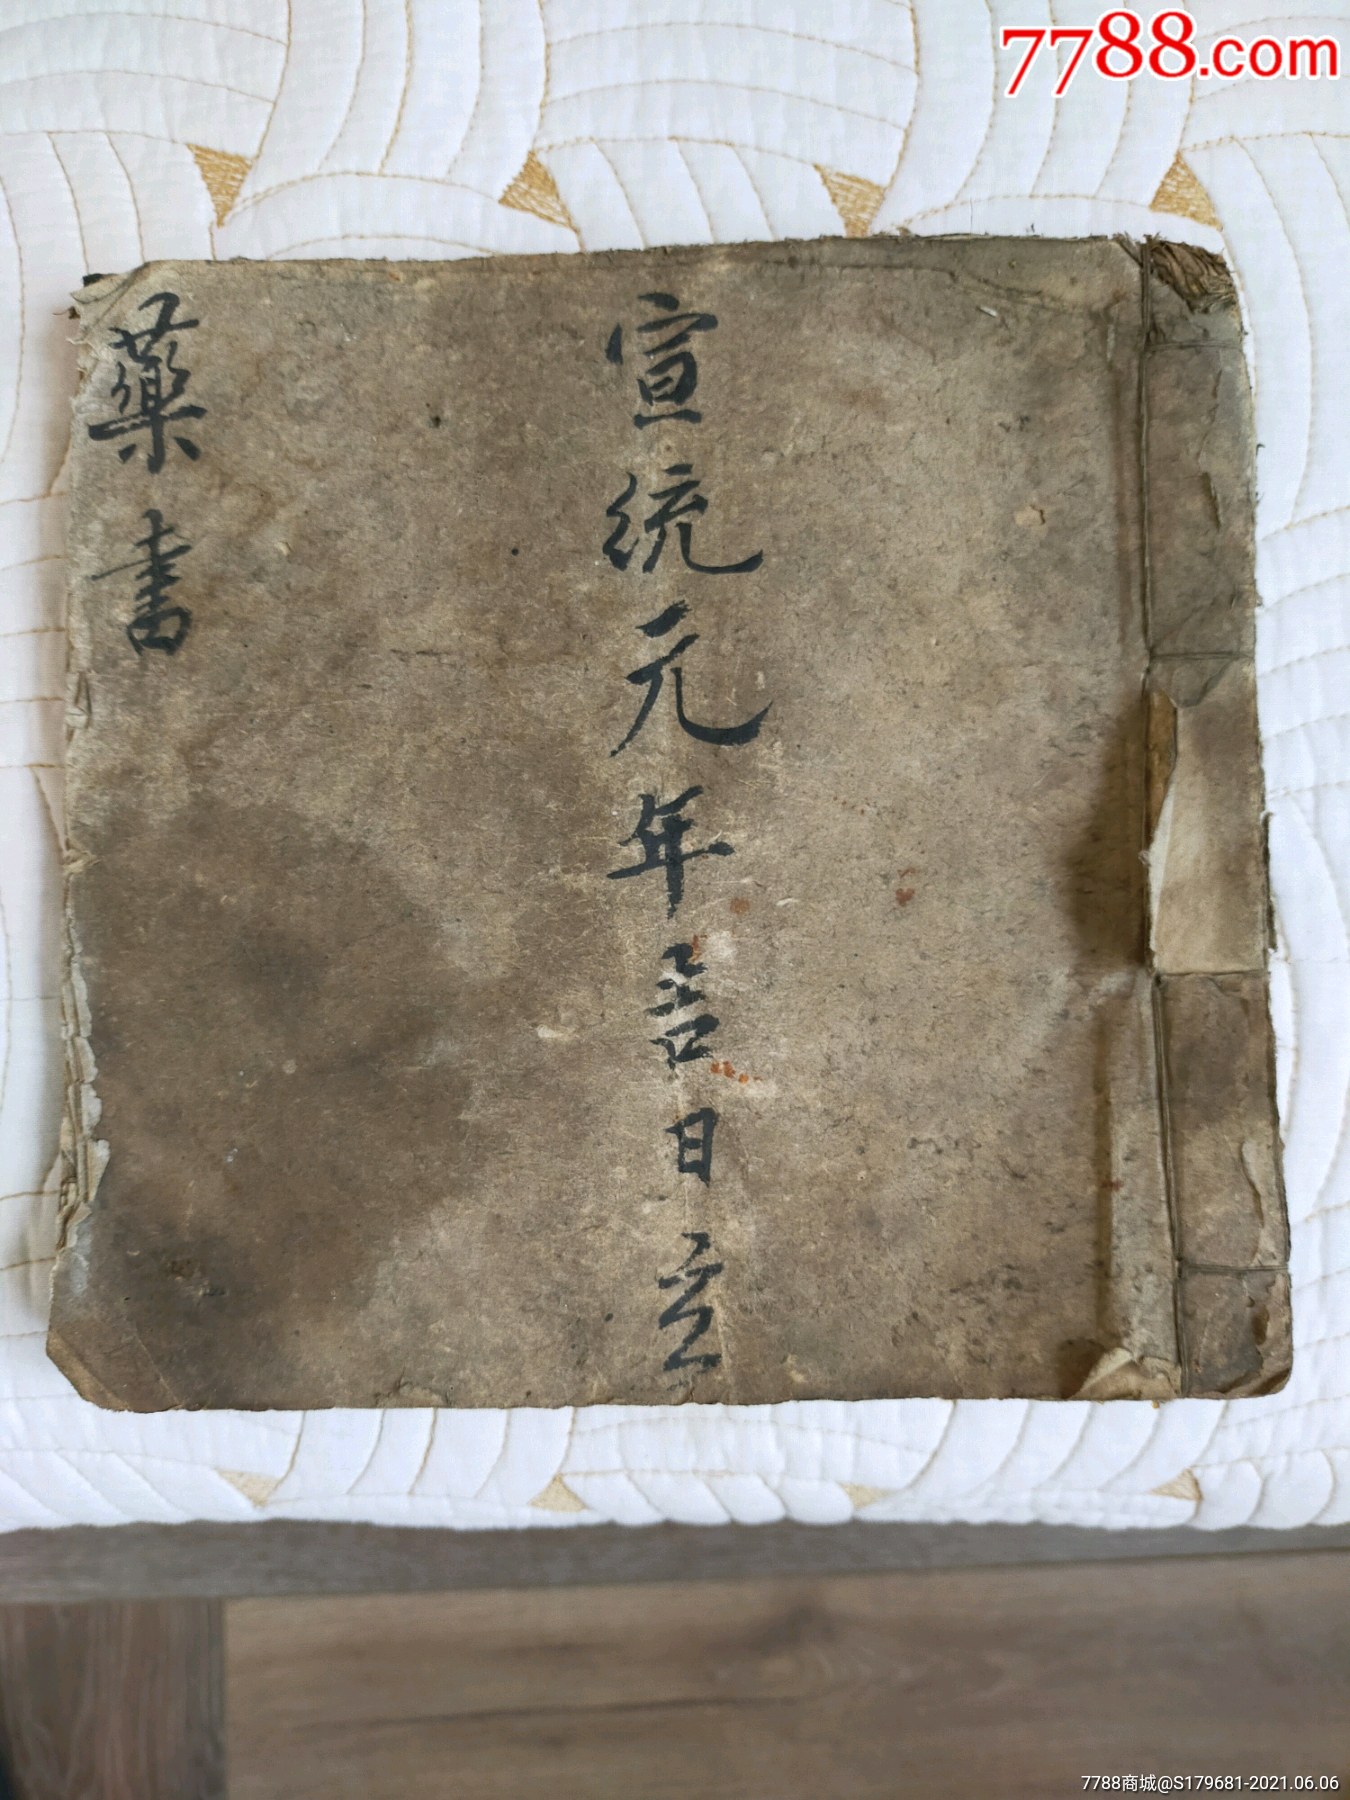 7788.com
宣統元年吉日立
藥書
7788商城@S179681-2021.06.06